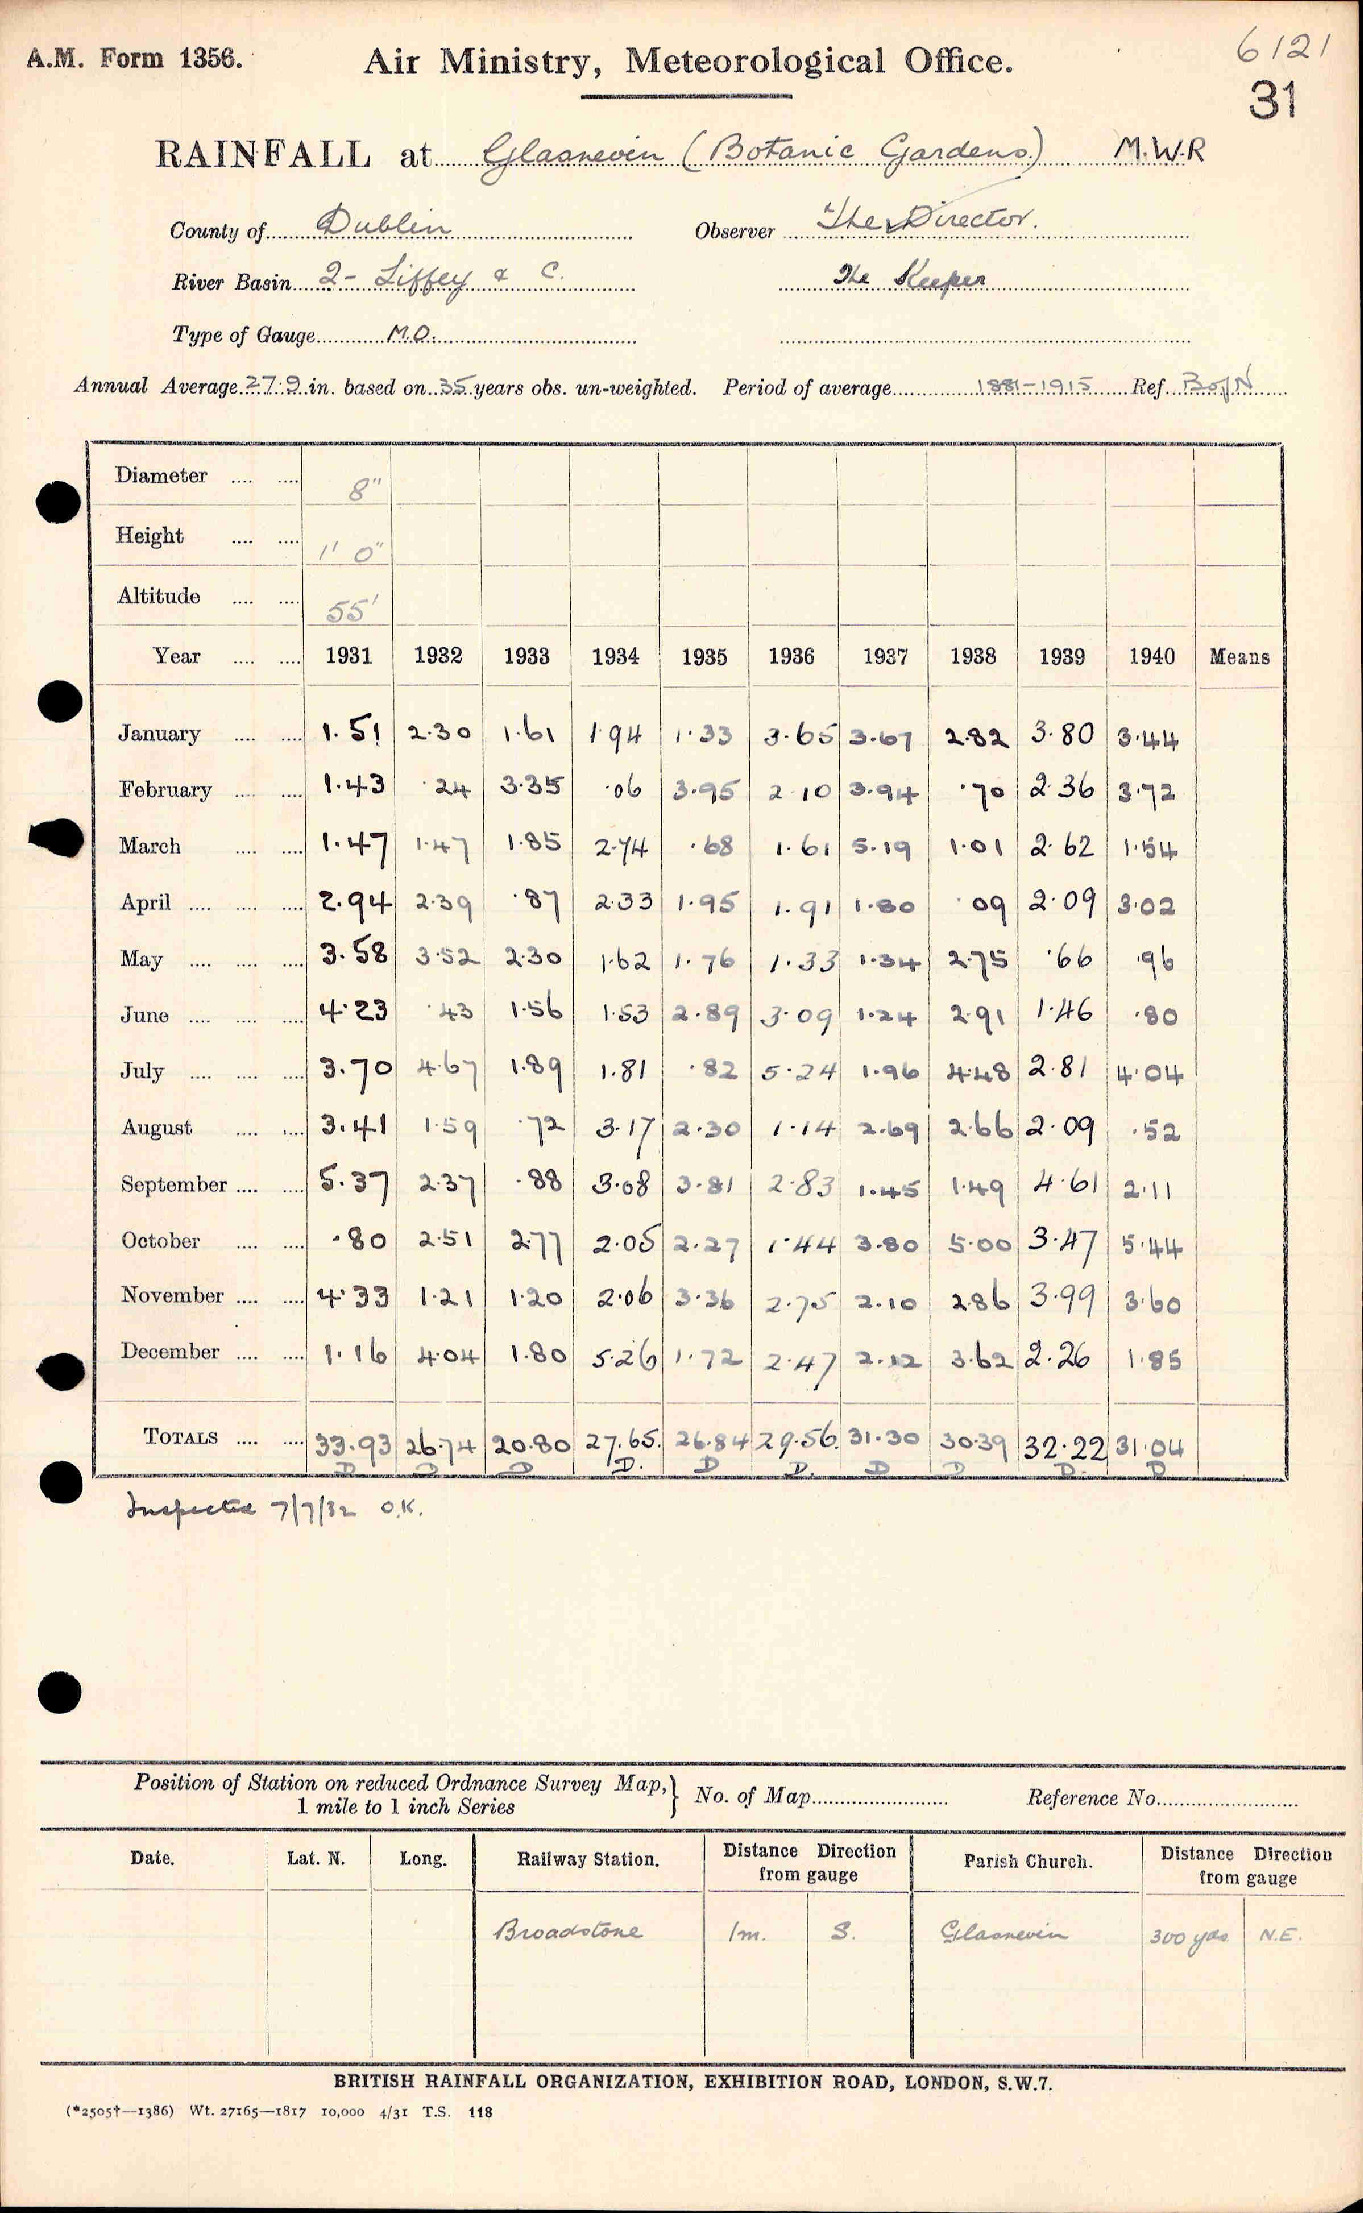 A.M. Form 1356.
Air Ministry, Meteorological Office.
6121
31
RAINFALL at Glasnevin (Botanic Gardens) M.W.R
County of Dublin Observer The Director.
River Basin 2- Liffey & C. The Keeper
Type of Gauge M.O.
Annual Average 27.9 in. based on 35 years obs. un-weighted. Period of average 1881-1915 Ref.
Diameter 8"
Height 1' 0"
Altitude 55'
Year 1931 1932 1933 1934 1935 1936 1937 1938 1939 1940 Means
January 1.51 2.30 1.61 1.94 1.33 3.65 3.67 2.82 3.80 3.44
February 1.43 .24 3.35 .06 3.95 2.10 3.94 .70 2.36 3.72
March 1.47 1.47 1.85 2.74 .68 1.61 5.19 1.01 2.62 1.54
April 2.94 2.39 .87 2.33 1.95 1.91 1.80 .09 2.09 3.02
May 3.58 3.52 2.30 1.62 1.76 1.33 1.34 2.75 .66 .96
June 4.23 .43 1.56 1.53 2.89 3.09 1.24 2.91 1.46 .80
July 3.70 4.67 1.89 1.81 .82 5.24 1.96 4.48 2.81 4.04
August 3.41 1.59 .72 3.17 2.30 1.14 2.69 2.66 2.09 .52
September 5.37 2.37 .88 3.08 3.81 2.83 1.45 1.49 4.61 2.11
October .80 2.51 2.77 2.05 2.27 1.44 3.80 5.00 3.47 5.44
November 4.33 1.21 1.20 2.06 3.36 2.75 2.10 2.86 3.99 3.60
December 1.16 4.04 1.80 5.26 1.72 2.47 2.12 3.62 2.26 1.85
TOTALS 33.93 26.74 20.80 27.65. 26.84 29.56. 31.30 30.39 32.22 31.04
D D D D. D D. D D D. D
Inspected 7/7/32 O.K.
Position of Station on reduced Ordnance Survey Map, No. of Map Reference No.
1 mile to 1 inch Series
Date. Lat. N. Long. Railway Station. Distance Direction from gauge Parish Church. Distance Direction from gauge
Broadstone 1m. S. Glasnevin 300 yds N.E.
BRITISH RAINFALL ORGANIZATION, EXHIBITION ROAD, LONDON, S.W.7.
(*2505†—1386) Wt. 27165—1817 10,000 4/31 T.S. 118